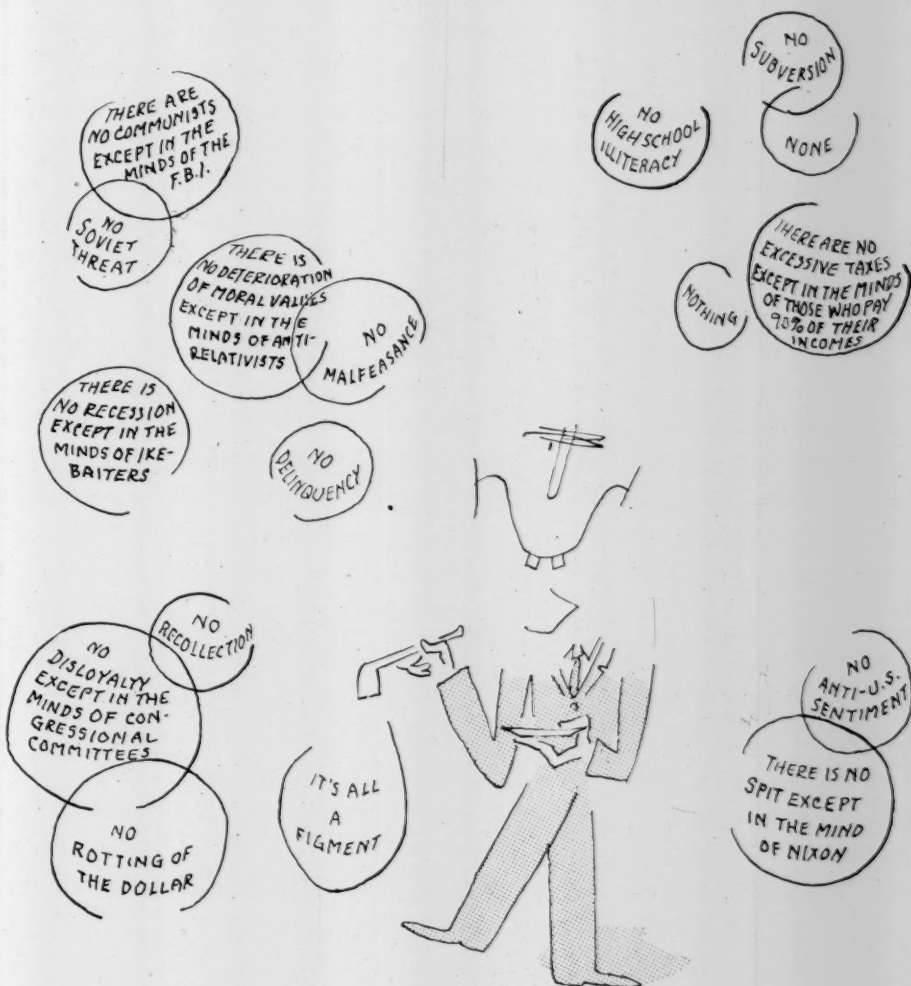 THERE ARE
NO COMMUNISTS
EXCEPT IN THE
MINDS OF THE
F.B.I.
NO
SOVIET
THREAT
THERE IS
NO DETERIORATION
OF MORAL VALUES
EXCEPT IN THE
MINDS OF ANTI-
RELATIVISTS
NO
MALFEASANCE
THERE IS
NO RECESSION
EXCEPT IN THE
MINDS OF IKE-
BAITERS
NO
DELINQUENCY
NO
SUBVERSION
NO
HIGH SCHOOL
ILLITERACY
NONE
THERE ARE NO
EXCESSIVE TAXES
EXCEPT IN THE MINDS
OF THOSE WHO PAY
90% OF THEIR
INCOMES
NOTHING
NO
RECOLLECTION
NO
DISLOYALTY
EXCEPT IN THE
MINDS OF CON-
GRESSIONAL
COMMITTEES
NO
ROTTING OF
THE DOLLAR
IT'S ALL
A
FIGMENT
NO
ANTI-U.S.
SENTIMENT
THERE IS NO
SPIT EXCEPT
IN THE MIND
OF NIXON